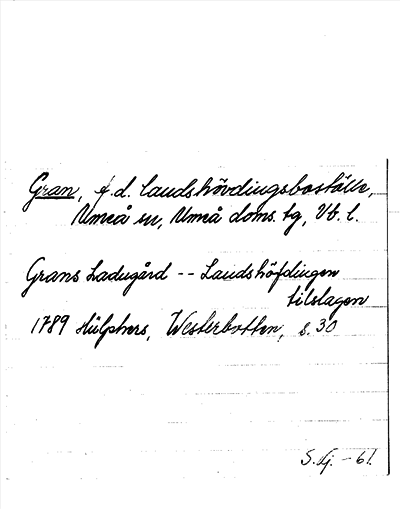 Gran, f.d. landshövdingsboställe,
Umeå sn, Umeå doms. tg, Vb. l.
Grans Ladugård -- Landshöfdingen
tilslagen
1789 Hülphers, Westerbotten, s. 30
S. Lj. -61.